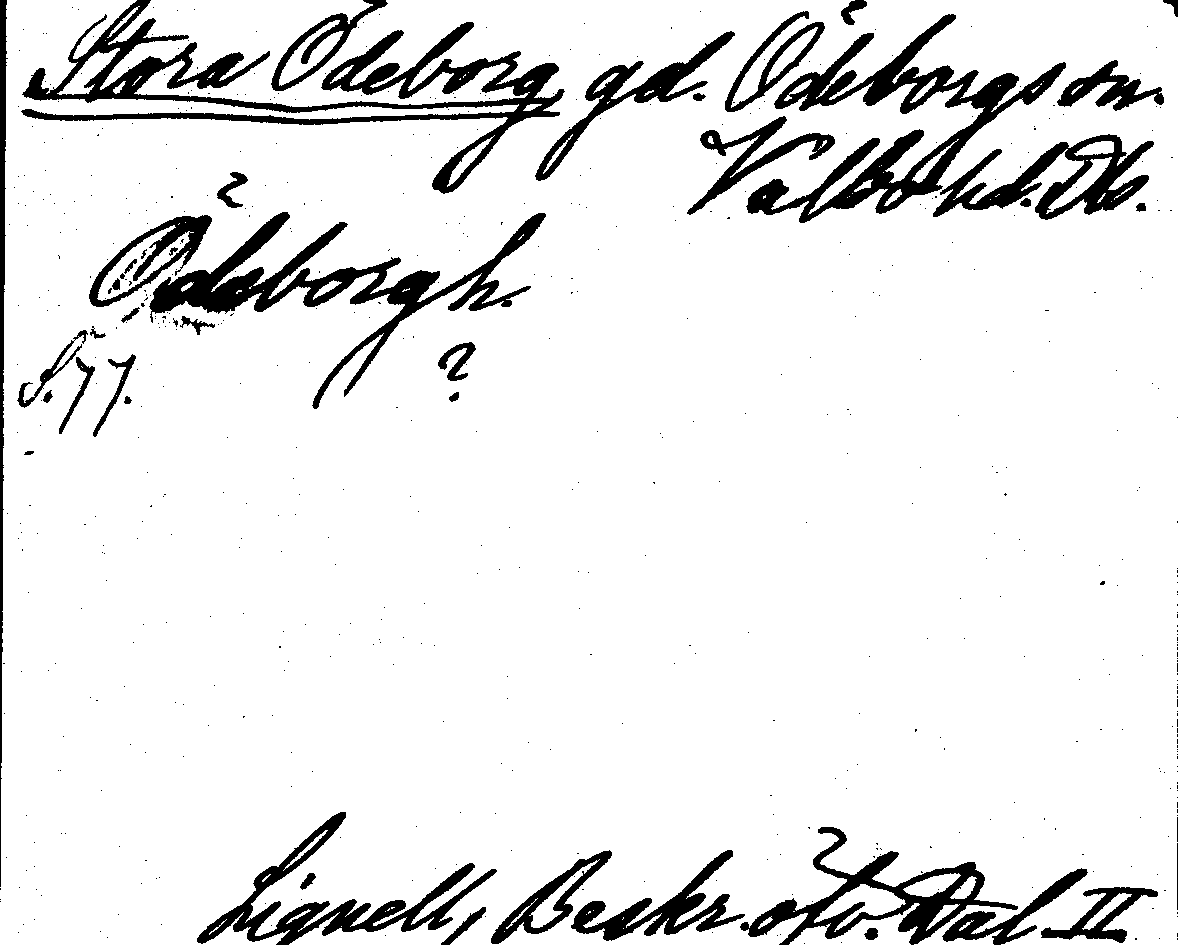 Stora Ödeborg, gd. Ödeborgs sn.
Valbo hd. Dls.
Ödeborgh.
S. 77. ?
Lignell, Beskr. öfv. Dal. II